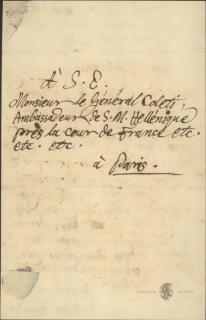 À S. E.
Monsieur le Général Coleti,
Ambassadeur de S. M. Hellénique
près la cour de France etc.
etc. etc.
à Paris.